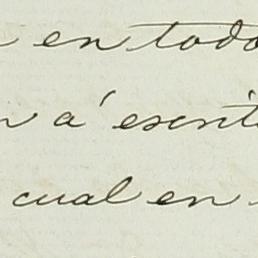 en todo
a' escrit
cual en